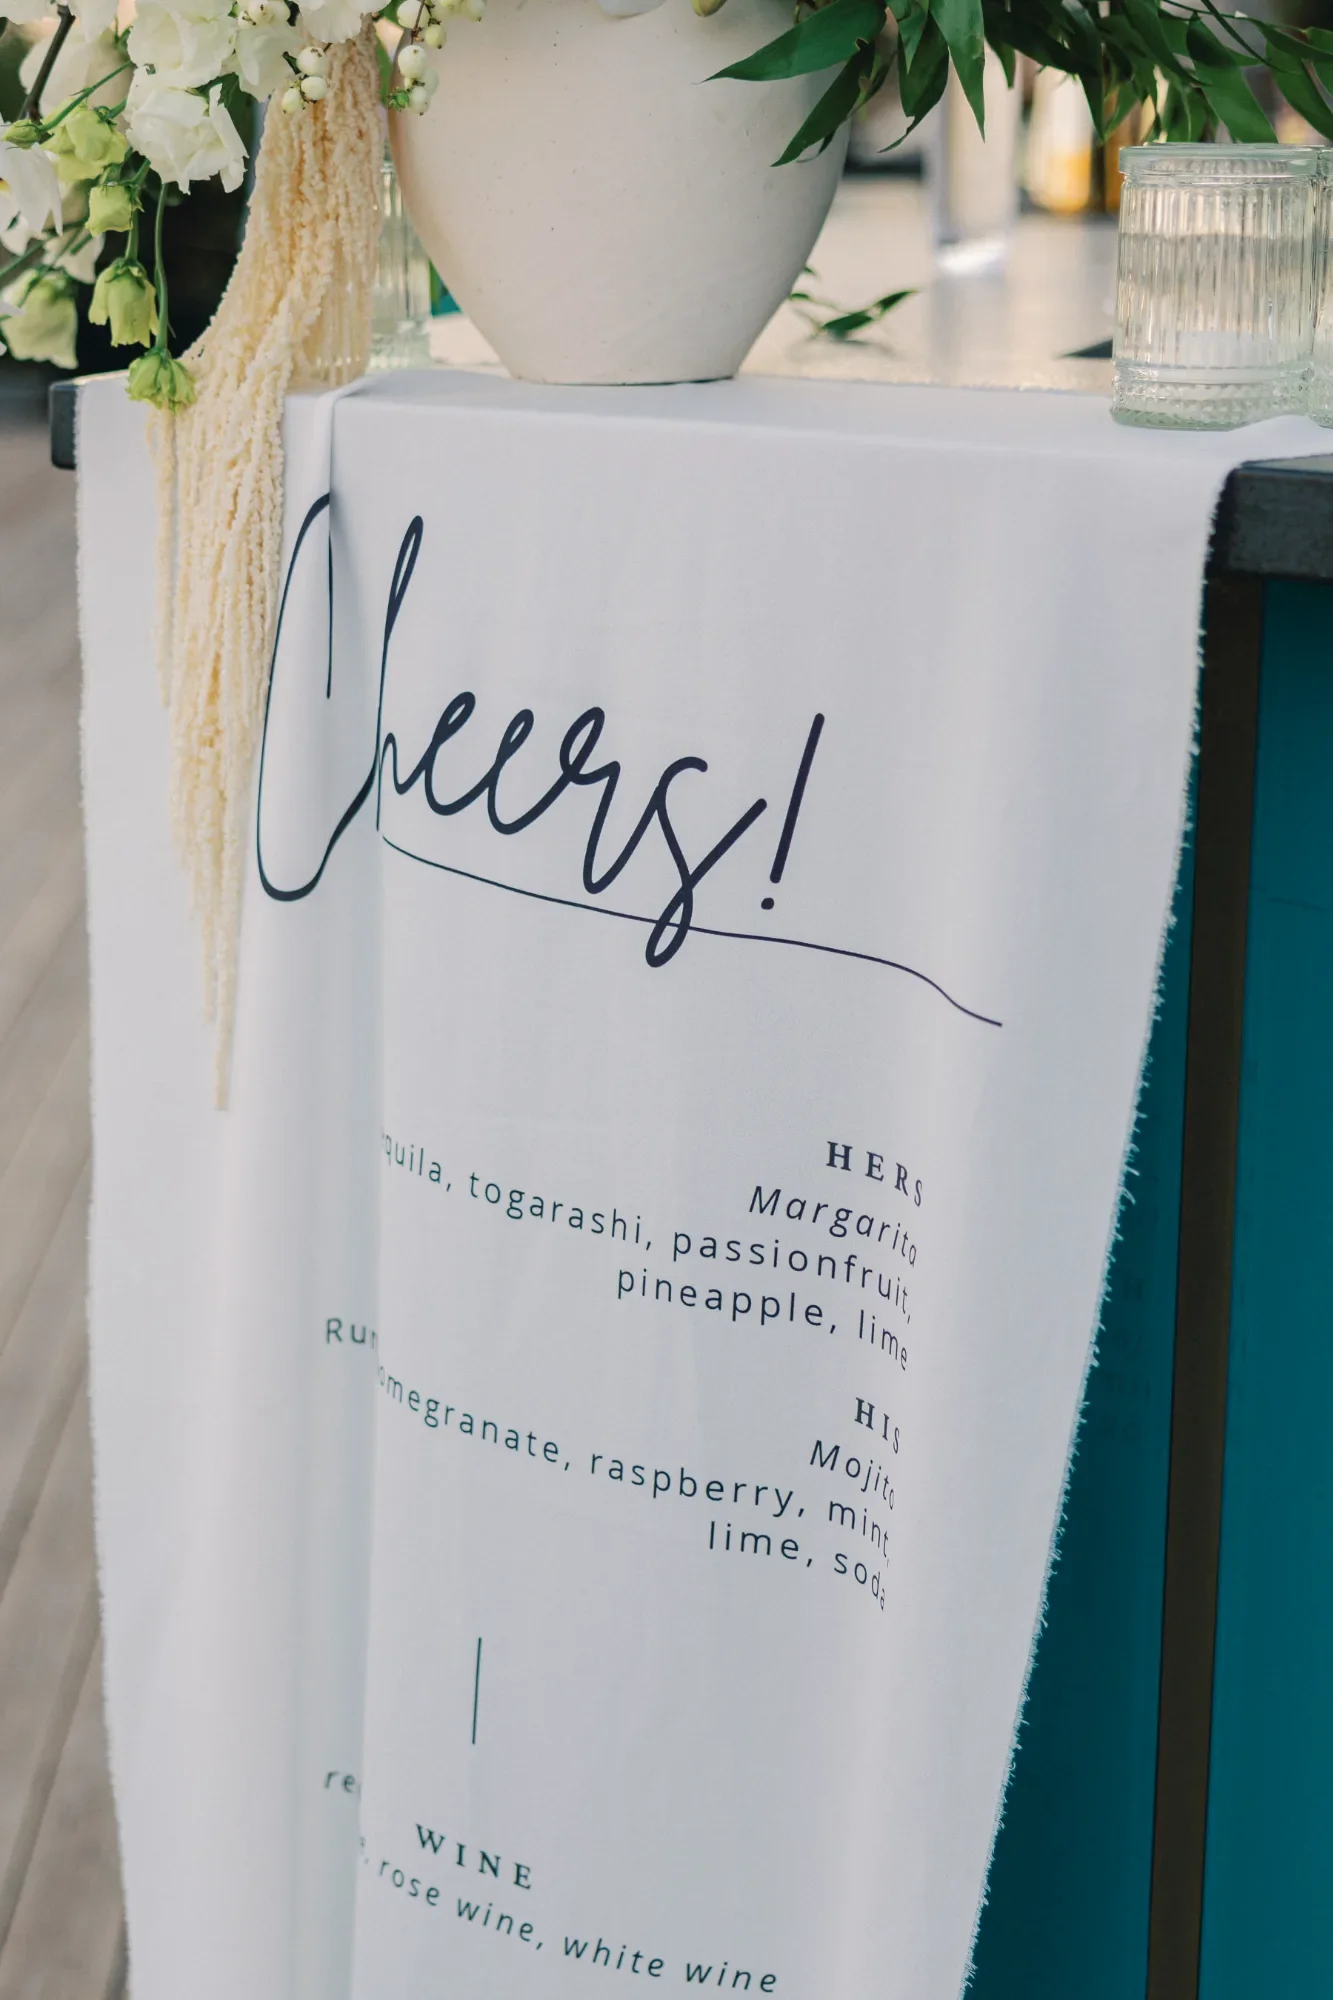 Cheers!
HERS
Margarita
togarashi, passionfruit,
pineapple, lime
HIS
Mojito
raspberry, mint,
lime, soda
WINE
rose wine, white wine